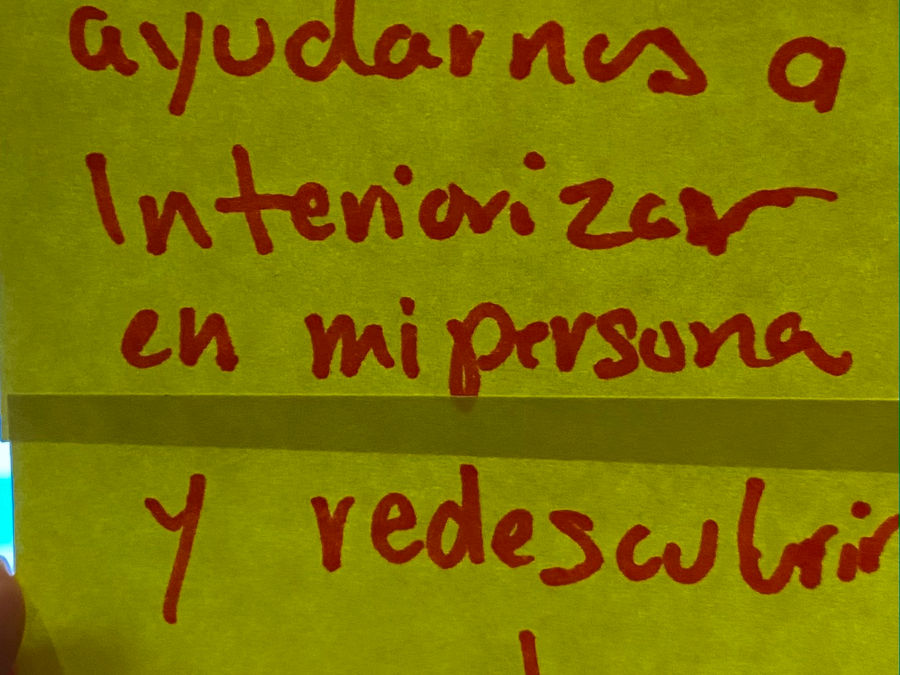 ayudarnos a
Interiorizar
en mi persona
y redescubrir